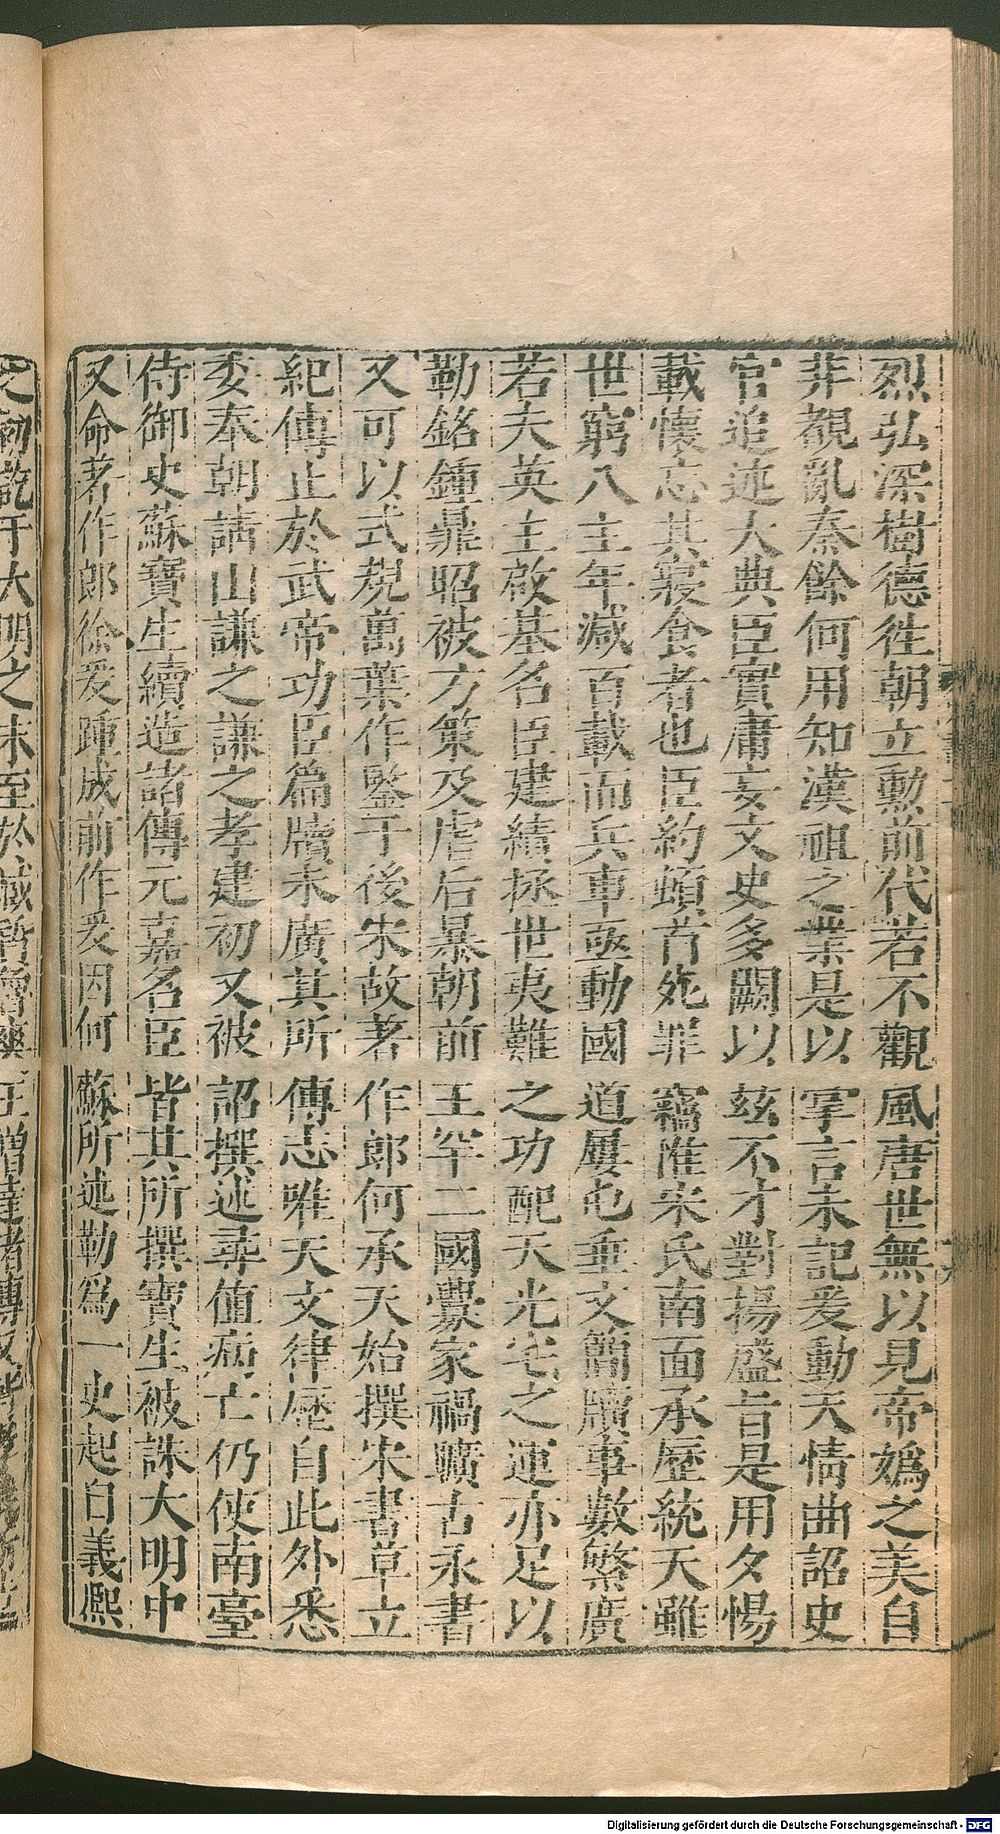 烈弘深樹德往朝立勲前代若不觀風唐世無以見帝嬀之美自
非覩亂秦餘何用知漢祖之業是以掌言未記爰動天情曲詔史
官追述大典臣實庸妄文史多闕以茲不才對揚盛旨是用夕惕
載懷忘其寢食者也臣約頓首死罪竊惟宋氏南面承歷統天雖
世窮八主年減百載而兵車亟動國道屢屯垂文簡牘事數繁廣
若夫英主啟基名臣建績拯世夷難之功配天光宅之運亦足以
勒銘鍾鼎昭被方策及虐后暴朝前王罕二國釁家禍曠古未書
又可以式規萬葉作鑒于後宋故著作郎何承天始撰宋書草立
紀傳止於武帝功臣篇牘未廣其所傳志唯天文律歷自此外悉
委奉朝請山謙之謙之孝建初又被詔撰述尋值病亡仍使南臺
侍御史蘇寶生續造諸傳元嘉名臣皆其所撰寶生被誅大明中
又命著作郎徐爰踵成前作爰因何蘇所述勒爲一史起自義熙
之初訖于大明之末至於臧質魯爽王僧達諸傳又皆
Digitalisierung gefördert durch die Deutsche Forschungsgemeinschaft - DFG